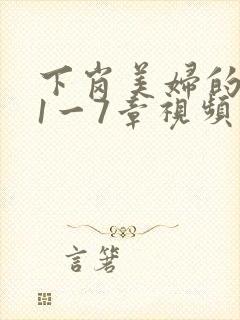 下岗美婦的
1一7章視頻
言箸